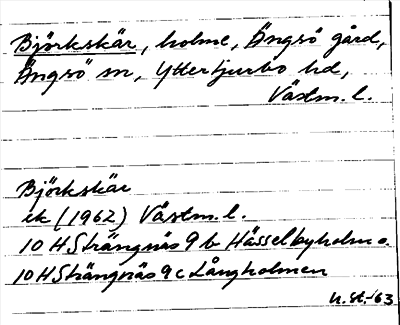 Björkskär, holme, Ängsö gård,
Ängsö sn, Yttertjurbo hd,
Västm. l.
Björkskär
ek (1962) Västm. l.
10 H Strängnäs 9 b Hässelbyholm o.
10 H Strängnäs 9 c Långholmen
N. St. -63